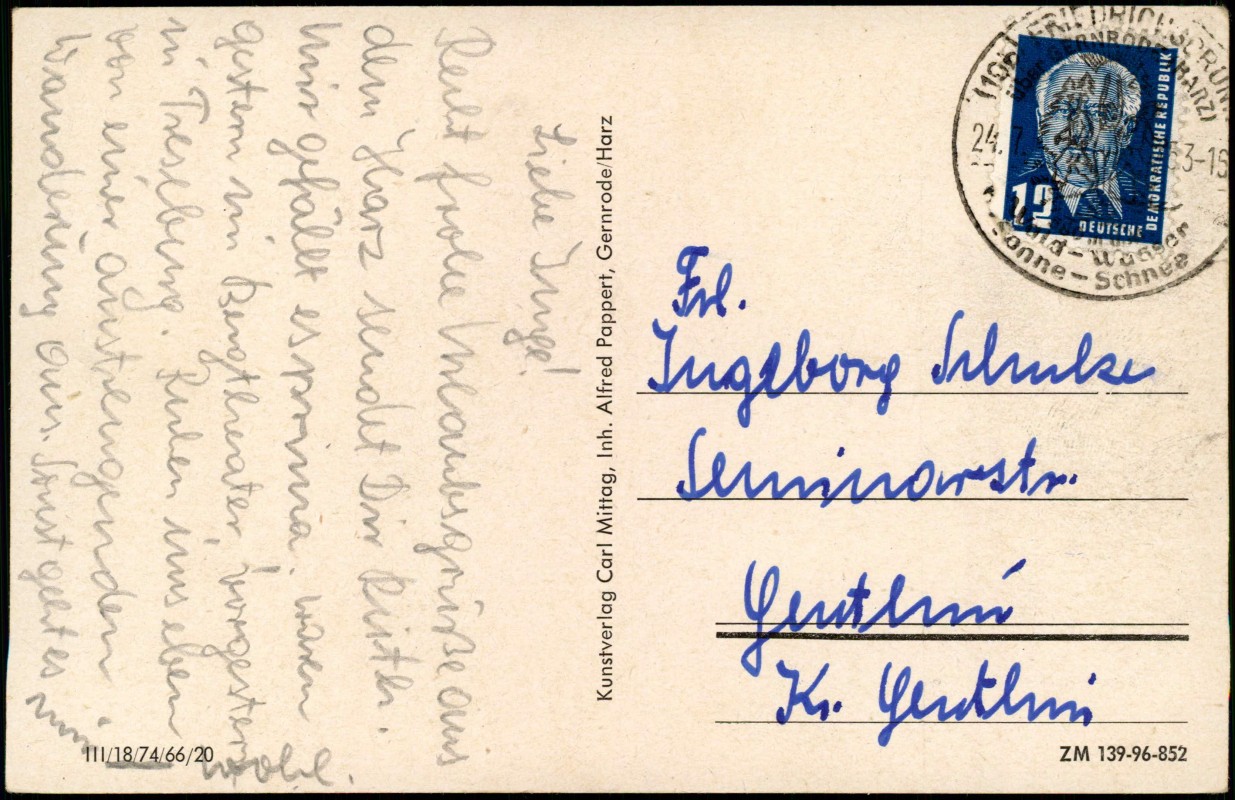 Liebe Inge!
Recht frohe Urlaubsgrüße aus
dem Harz sendet Dir
Uns gefällt es prima. waren
gestern im Bergtheater, vorgestern
in Treseburg. Ruhen uns eben
von einer anstrengenden
Wanderung aus. Sonst geht es
wohl.
Kunstverlag Carl Mittag, Inh. Alfred Pappert, Gernrode/Harz
III/18/74/66/20
FRIEDRICHSBRUNN
über GERNRODE (HARZ)
24.7.
53-18
Wald - Wasser
Sonne - Schnee
12
DEUTSCHE
DEMOKRATISCHE REPUBLIK
Frl.
Ingeborg Schulze
Seminarstr.
Genthin
Kr. Genthin
ZM 139-96-852